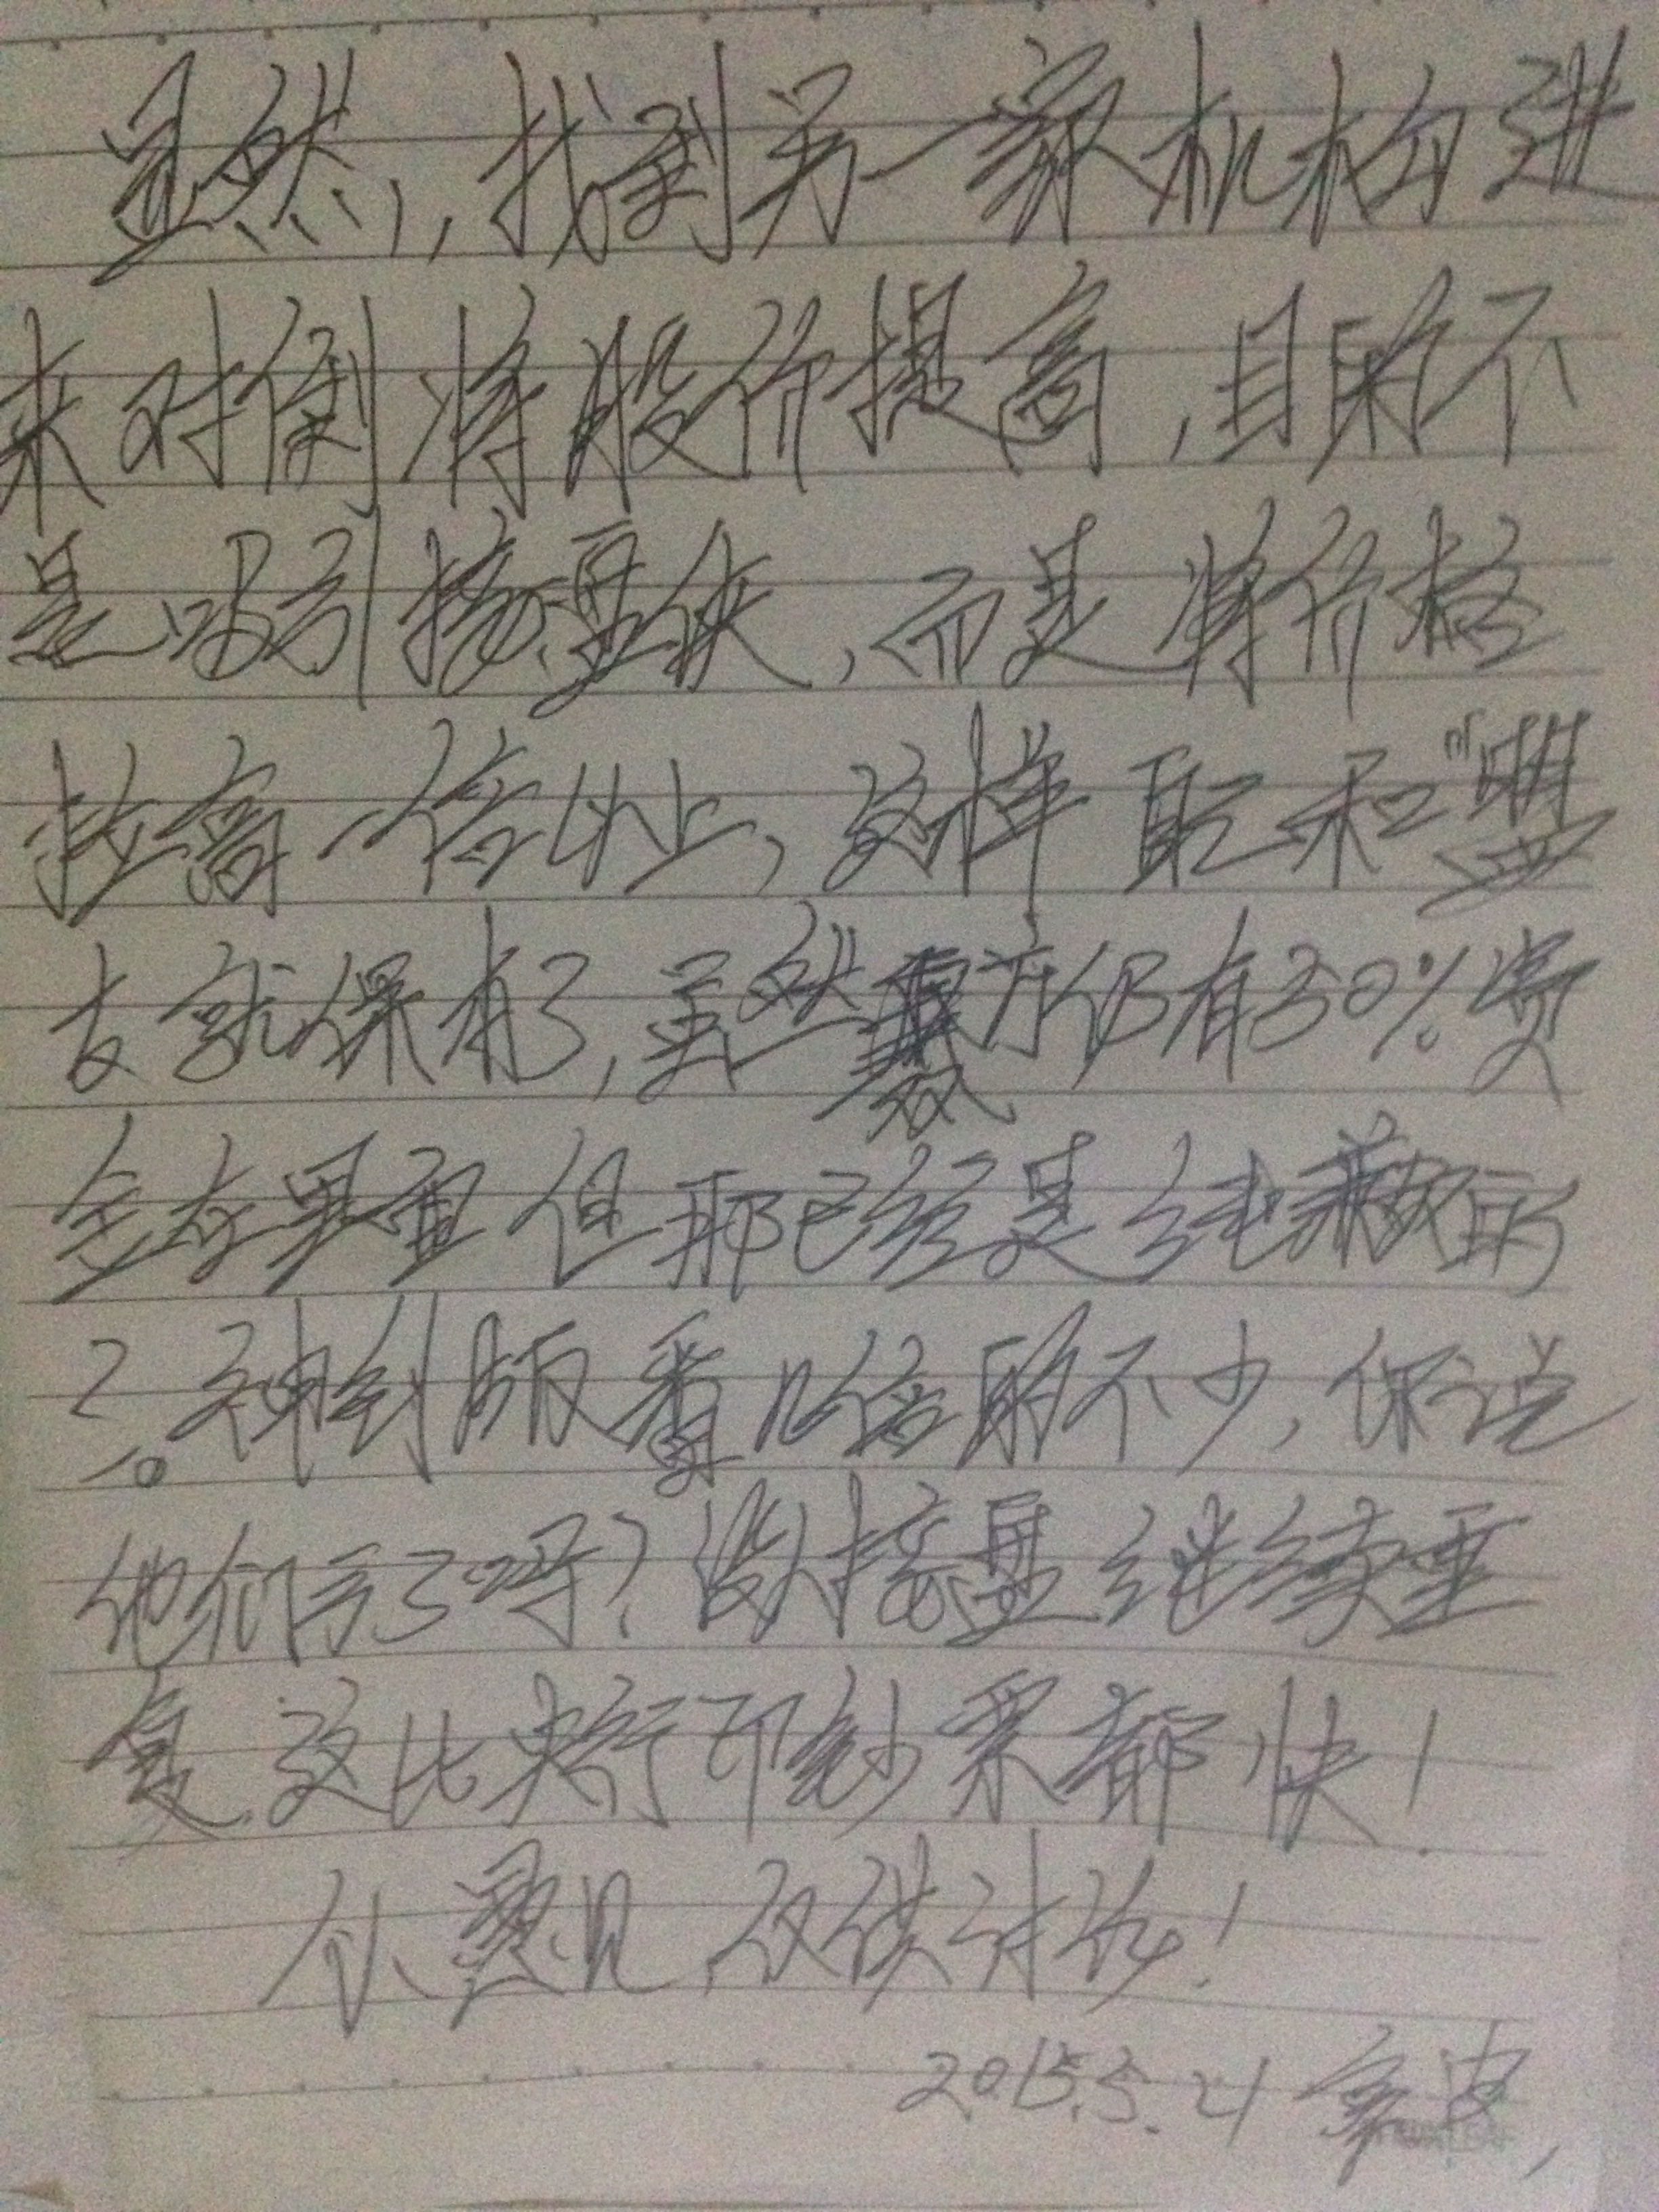 显然,找到另一家机构进
来对倒将股价提高,目的不
是吸引接盘侠,而是将价格
拉高一倍以上,这样自己和"盟
友就保本了,虽然双方仍有50%资
金在里面但那已经是纯赚的
了。神创版番几倍的不少,你说
他们亏了吗?没人接盘继续重
复,这比央行印钞票都快!
小意见,仅供讨论!
2015.5.21